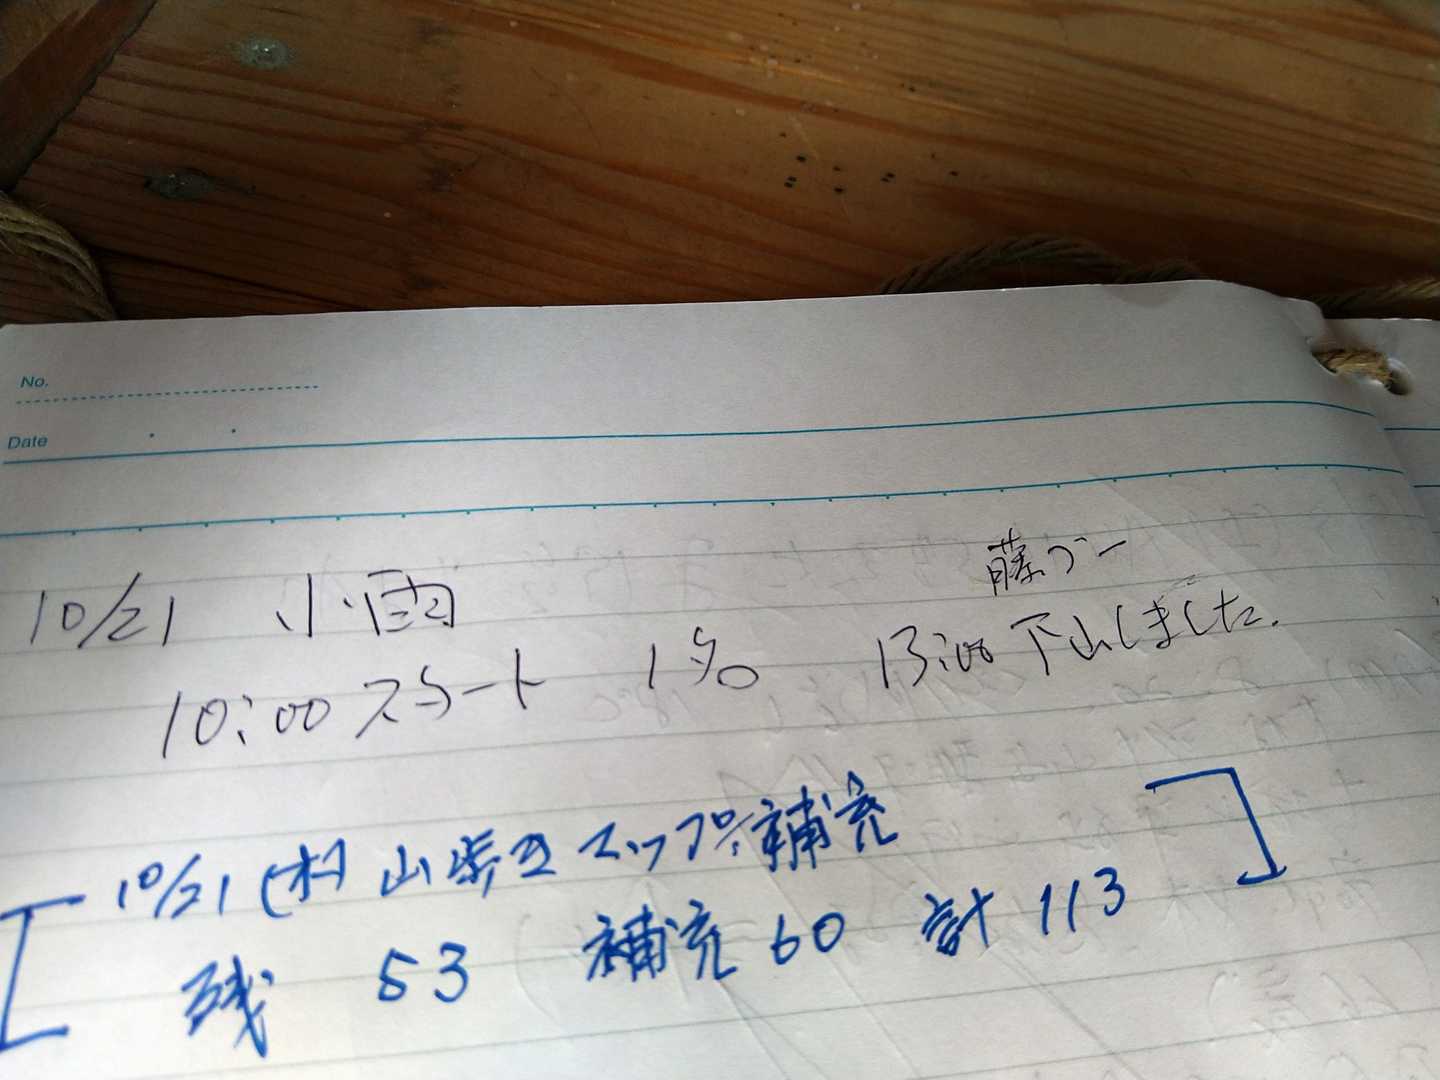 No.
Date
藤づー
10/21 小雨
10:00 スタート 1名 13:00 下山しました.
10/21 (木) 山歩きマップ 補充
残 53 補充 60 計 113